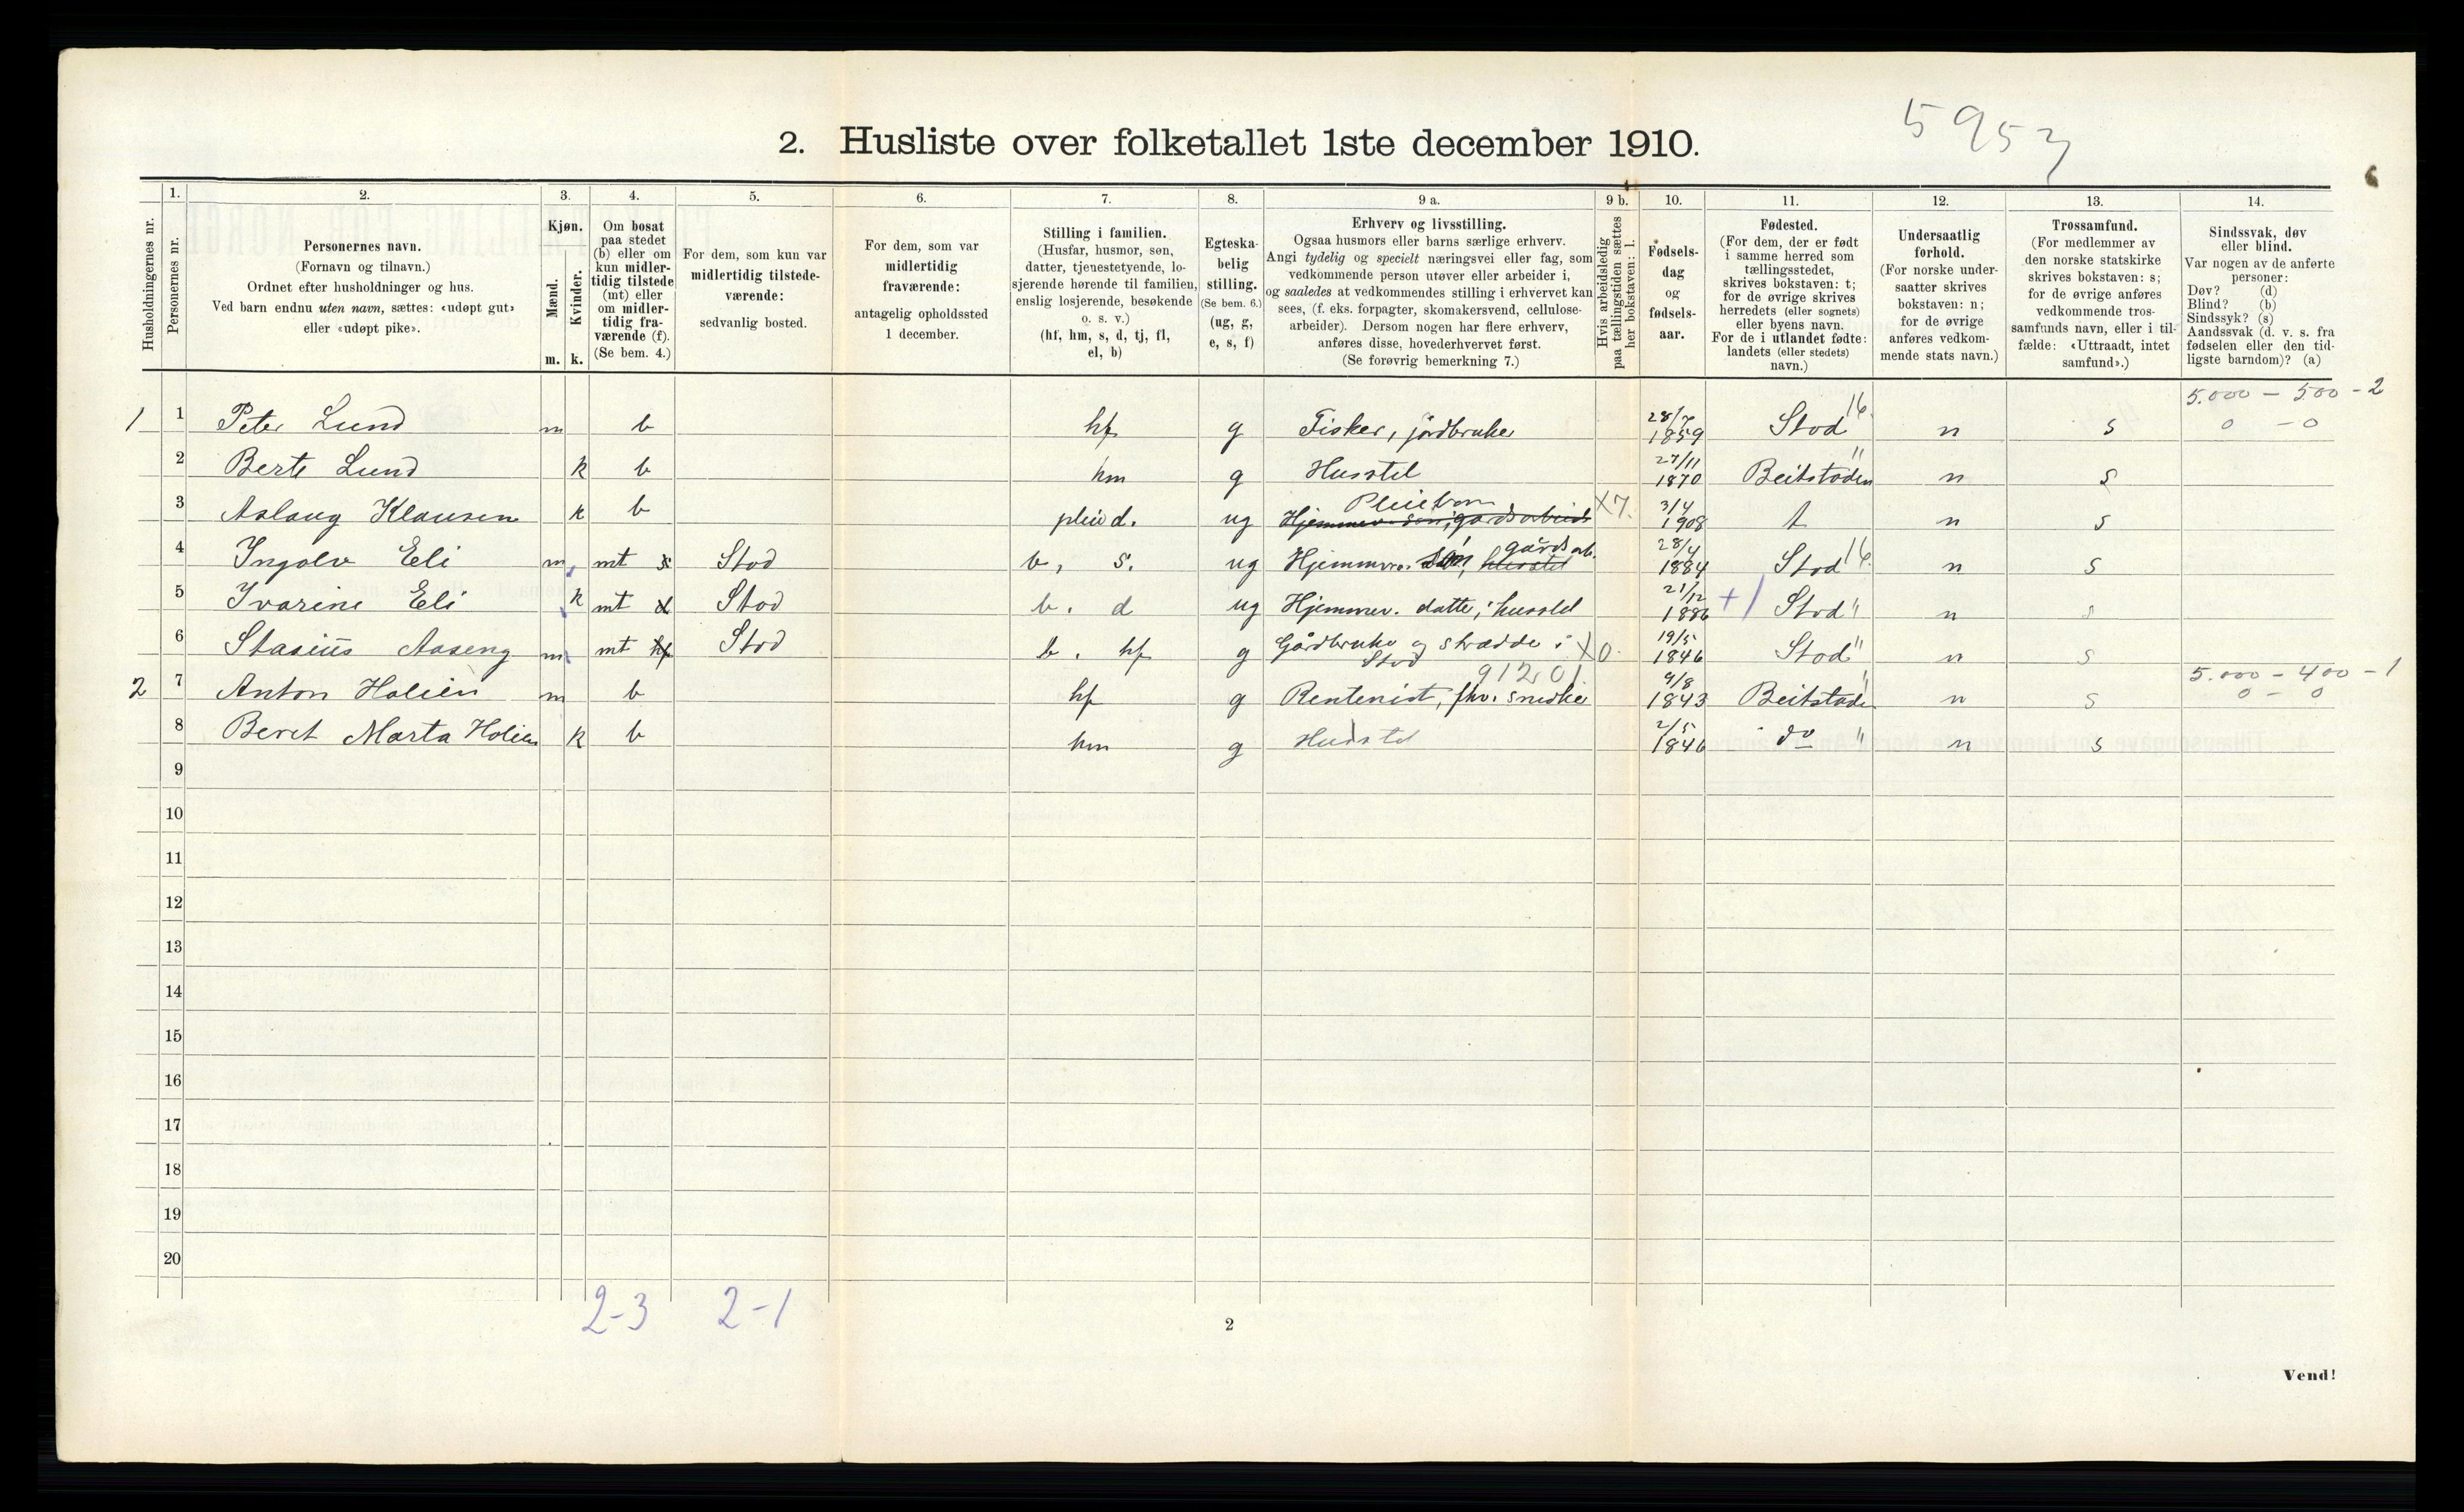 5953
2. Husliste over folketallet 1ste december 1910.
Husholdningernes nr.
1.
Personernes nr.
2.
Personernes navn.
(Fornavn og tilnavn.)
Ordnet efter husholdninger og hus.
Ved barn endnu uten navn, sættes: «udøpt gut»
eller «udøpt pike».
3.
Kjøn.
Mænd.
Kvinder.
m. k.
4.
Om bosat
paa stedet
(b) eller om
kun midler-
tidig tilstede
(mt) eller
om midler-
tidig fra-
værende (f).
(Se bem. 4.)
5.
For dem, som kun var
midlertidig tilstede-
værende:
sedvanlig bosted.
6.
For dem, som var
midlertidig
fraværende:
antagelig opholdssted
1 december.
7.
Stilling i familien.
(Husfar, husmor, søn,
datter, tjenestetyende, lo-
sjerende hørende til familien,
enslig losjerende, besøkende
o. s. v.)
(hf, hm, s, d, tj, fl,
el, b)
8.
Egteska-
belig
stilling.
(Se bem. 6.)
(ug, g,
e, s, f)
9 a.
Erhverv og livsstilling.
Ogsaa husmors eller barns særlige erhverv.
Angi tydelig og specielt næringsvei eller fag, som
vedkommende person utøver eller arbeider i,
og saaledes at vedkommendes stilling i erhvervet kan
sees, (f. eks. forpagter, skomakersvend, cellulose-
arbeider). Dersom nogen har flere erhverv,
anføres disse, hovederhvervet først.
(Se forøvrig bemerkning 7.)
9 b.
Hvis arbeidsledig
paa tællingstiden sættes
her bokstaven: l.
10.
Fødsels-
dag
og
fødsels-
aar.
11.
Fødested.
(For dem, der er født
i samme herred som
tællingsstedet,
skrives bokstaven: t;
for de øvrige skrives
herredets (eller sognets)
eller byens navn.
For de i utlandet fødte:
landets (eller stedets)
navn.)
12.
Undersaatlig
forhold.
(For norske under-
saatter skrives
bokstaven: n;
for de øvrige
anføres vedkom-
mende stats navn.)
13.
Trossamfund.
(For medlemmer av
den norske statskirke
skrives bokstaven: s;
for de øvrige anføres
vedkommende tros-
samfunds navn, eller i til-
fælde: «Uttraadt, intet
samfund».)
14.
Sindssvak, døv
eller blind.
Var nogen av de anførte
personer:
Døv? (d)
Blind? (b)
Sindssyk? (s)
Aandssvak (d. v. s. fra
fødselen eller den tid-
ligste barndom)? (a)
5.000 - 500 - 2
1 1 Peter Lund m b hf g Fisker, jordbruker 28/7 1859 Stod 16. n s 0 - 0
2 Berte Lund k b hm g Husstel 27/11 1870 Beitstaden " n s
3 Aslaug Klausen k b pleied. ug Hjemmev. søn, gårdsarbeide Pleiebarn X7. 3/4 1908 t n s
4 Ingolv Eli m mt s Stod b, s. ug Hjemmev. søn, husstel gårdsarb. 28/4 1884 Stod 16. n s
5 Ivarine Eli k mt d Stod b. d ug Hjemmev. datter; husstel 21/12 1886 +1 Stod " n s
6 Stasius Aaseng m mt hf Stod b. hf g Gårdbruker og strædde i Stod X0. 19/5 1846 Stod " n s
91201 5.000 - 400 - 1
2 7 Anton Holien m b hf g Rentenist, fhv. snedker 9/8 1843 Beitstaden " n s 0 - 0
8 Beret Marta Holien k b hm g Husstel 2/5 1846 do " n s
9
10
11
12
13
14
15
16
17
18
19
20
2-3 2-1
2
Vend!